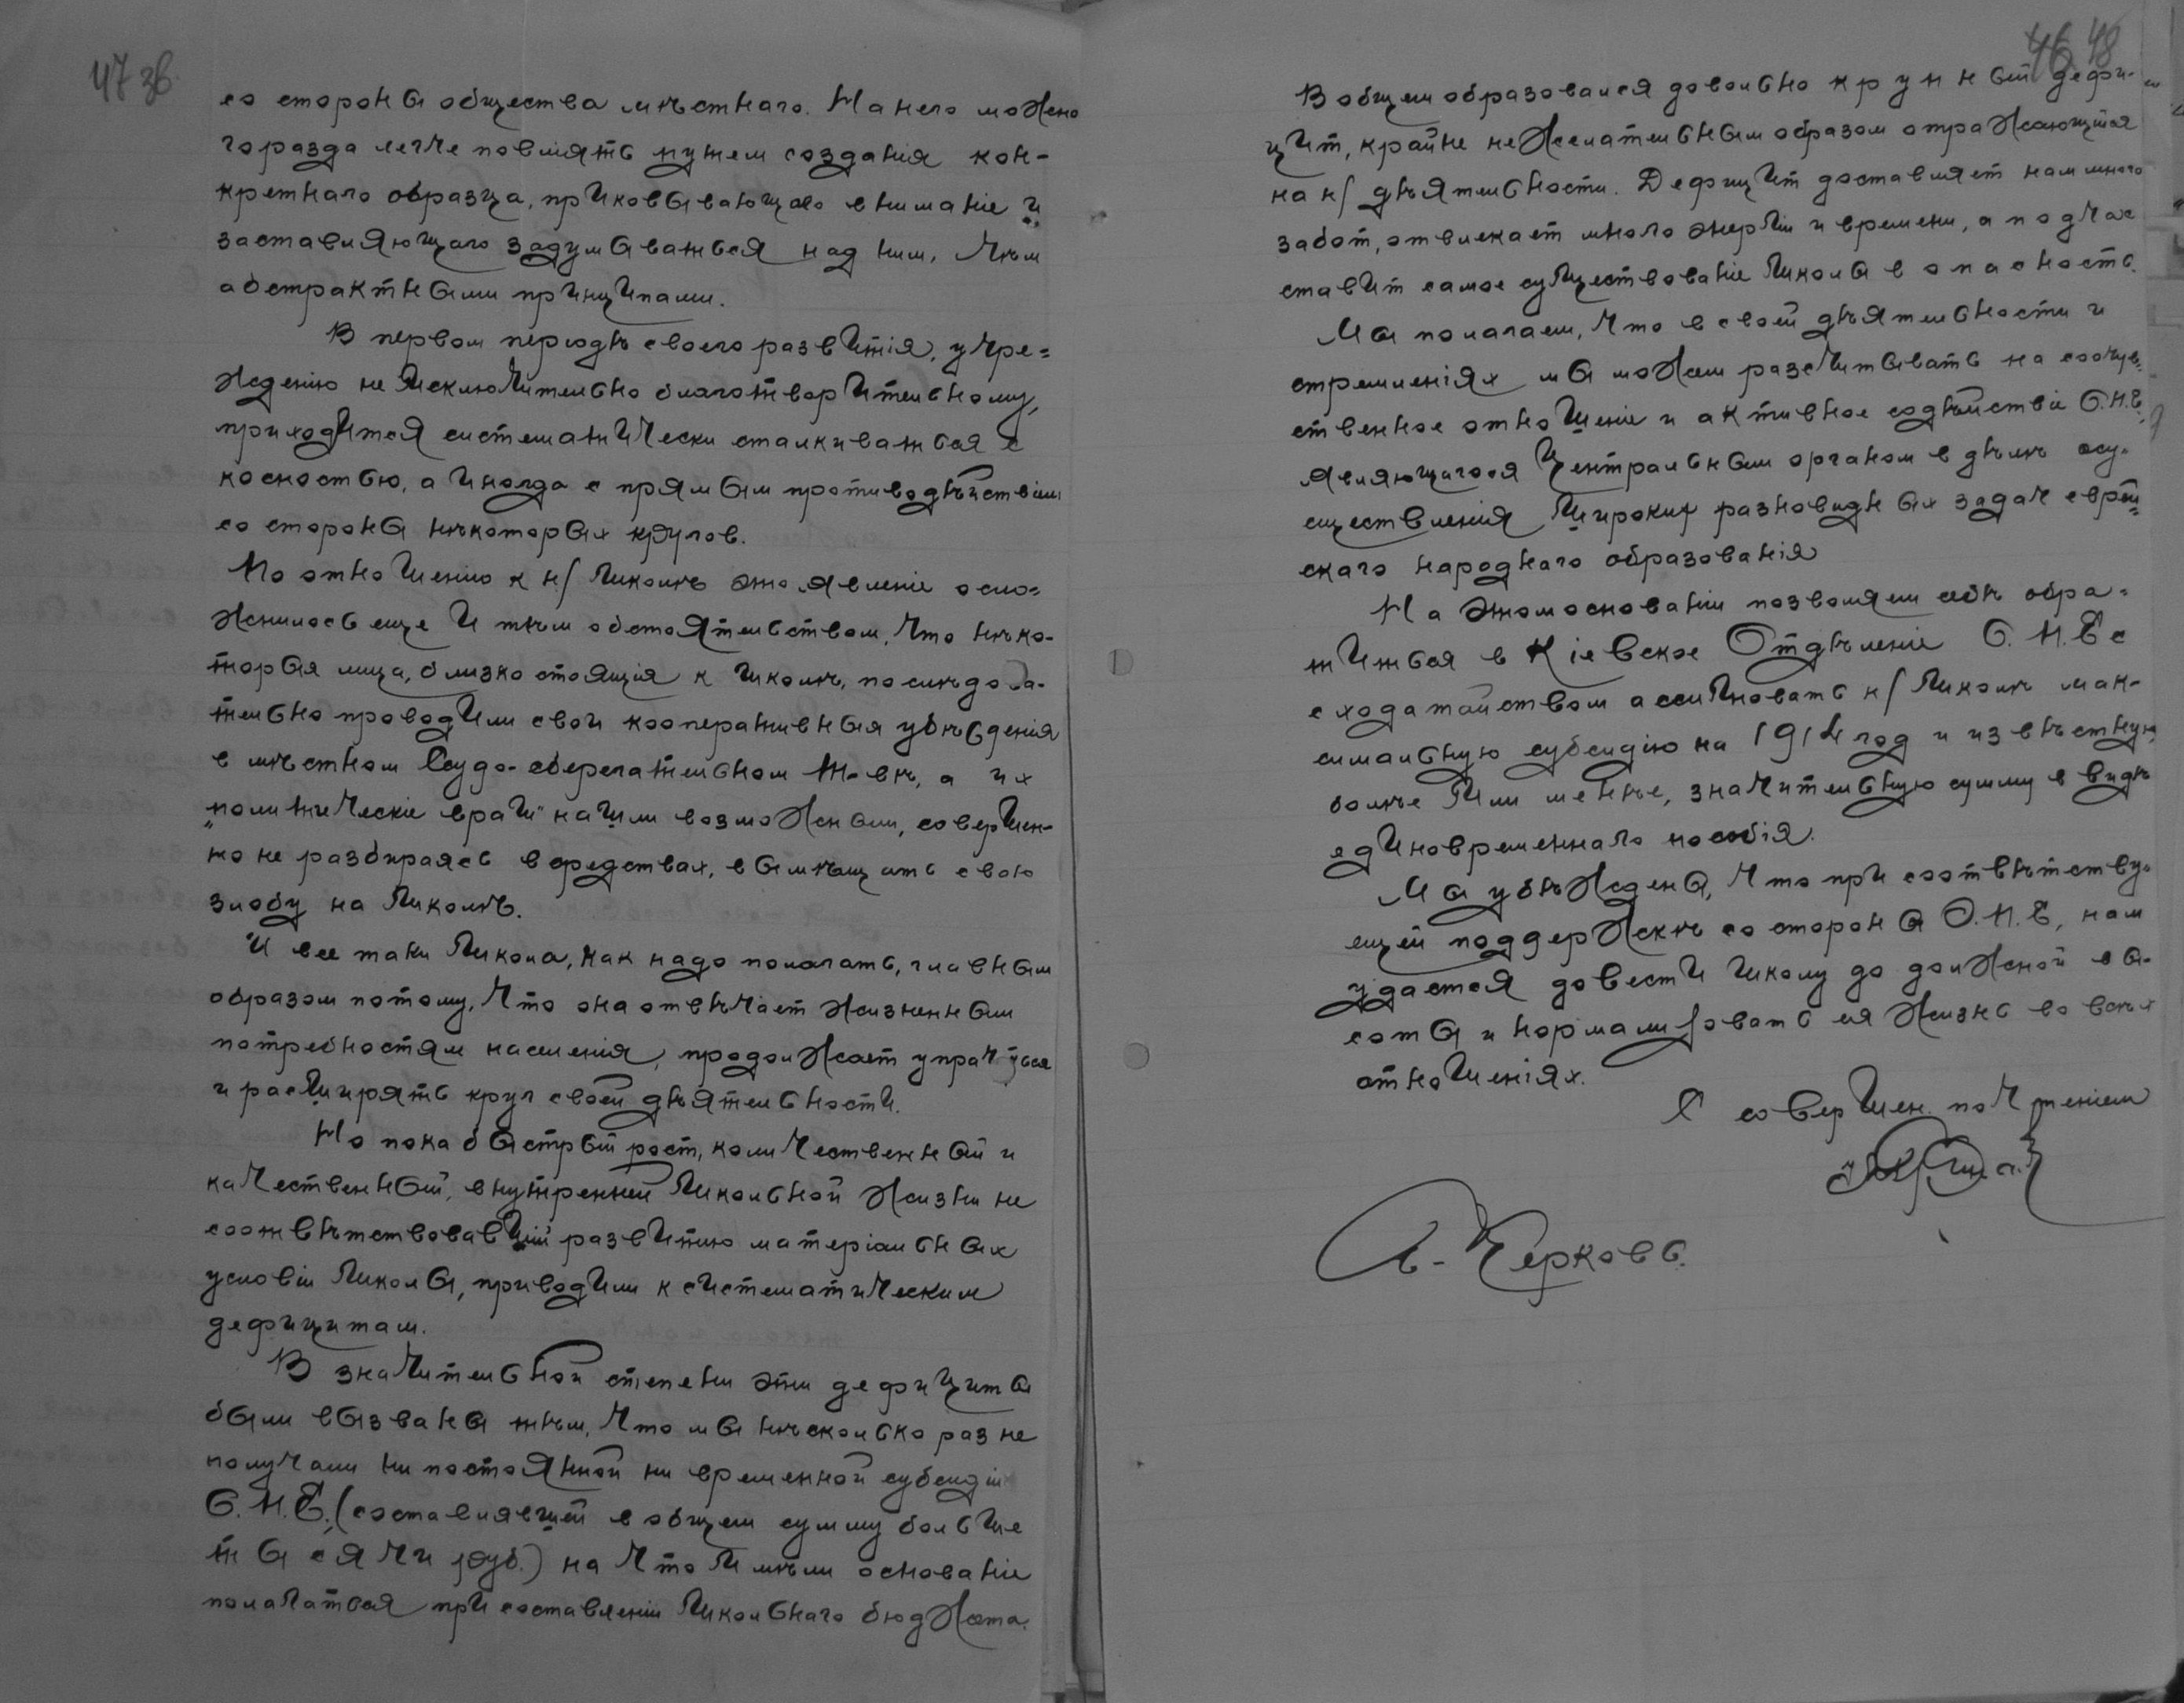 47 зв.
со стороны общества мѣстнаго. На него можно
горазда легче повліять путем созданія кон-
кретнаго образца, приковывающаго вниманіе и
заставляющаго задумываться над ним, чѣм
абстрактными принципами.
В первом періодѣ своего развитія, учре=
жденію не исключительно благотворительному,
приходится систематически сталкиваться с
косностью, а иногда с прямым противодѣйствіем
со стороны нѣкоторых кругов.
По отношенію к н/ школѣ это явленіе осло=
жнилось еще и тѣм обстоятельством, что нѣко-
торыя лица, близко стоящія к школѣ, послѣдова-
тельно проводили свои кооперативныя убѣждения
в мѣстном Ссудо-сберегательном Т-вѣ, а их
"политическіе враги" нашли возможным, совершен-
но не разбираясь в средствах, вымѣщать свою
злобу на школѣ.
И все таки школа, как надо полагать, главным
образом потому, что она отвѣчает жизненным
потребностям населенія, продолжает упрочиться
и расширять круг своей дѣятельности.
Но пока быстрый рост, количественный и
качественный, внутренней школьной жизни не
соотвѣтствовавшій развитію матеріальных
условій школы, приводили к систематическим
дефицитам.
В значительной степени эти дефициты
были вызваны тѣм, что мы нѣсколько раз не
получали ни постоянной ни временной субсидіи
О.П.Е. (составлявшей в общем сумму больше
тысячи руб.) на что имѣли основаніе
полагаться при составленіи школьнаго бюджета.
46 48
В общем образовался довольно крупный дефи-
цит, крайне нежелательным образом отражающійся
на н/ дѣятельности. Дефицит доставляет нам много
забот, отвлекает много энергіи и времени, а подчас
ставит самое существованіе школы в опасность.
Мы полагаем, что в своей дѣятельности и
стремленіях мы можем расчитывать на сочув-
ственное отношеніе и активное содѣйствіе О.П.Е.
являющагося центральным органом в дѣлѣ осу-
ществленія широких разновидных задач еврей=
скаго народнаго образованія
На этом основаніи позволяем себѣ обра-
титься в Кіевское Отдѣленіе О.П.Е с
с ходатайством ассигновать н/ школѣ мак-
симальную субсидію на 1914 год и извѣстную,
болѣе или менѣе, значительную сумму в видѣ
единовременнаго пособія.
Мы убѣждены, что при соотвѣтству-
ющей поддержкѣ со стороны О.П.Е, нам
удастся довести школу до должной вы-
соты и нормализовать ея жизнь во всѣх
отношеніях.
С совершен. почтеніем